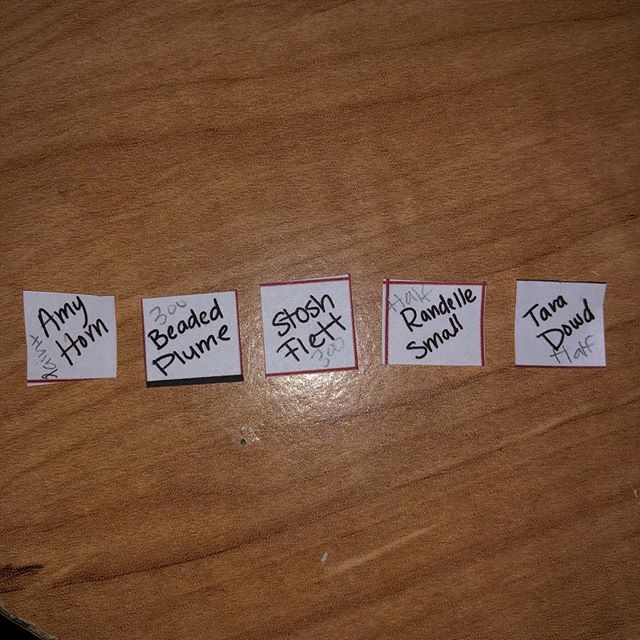 Amy
Horn
300
Beaded
Plume
Stosh
Flett
300
Half
Randelle
Small
Tara
Dowd
Half